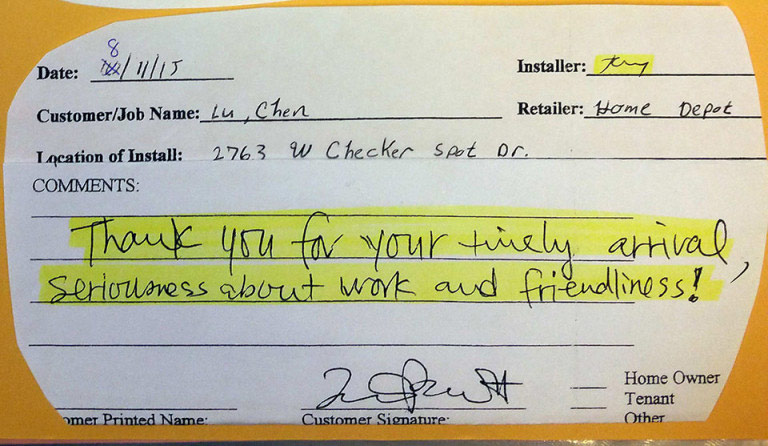 Date: 8/11/15
Installer:
Customer/Job Name: Lu, Chen
Retailer: Home Depot
Location of Install: 2763 W Checker Spot Dr.
COMMENTS:
Thank you for your timely arrival,
seriousness about work and friendliness!
Home Owner
Tenant
omer Printed Name:
Customer Signature:
Other